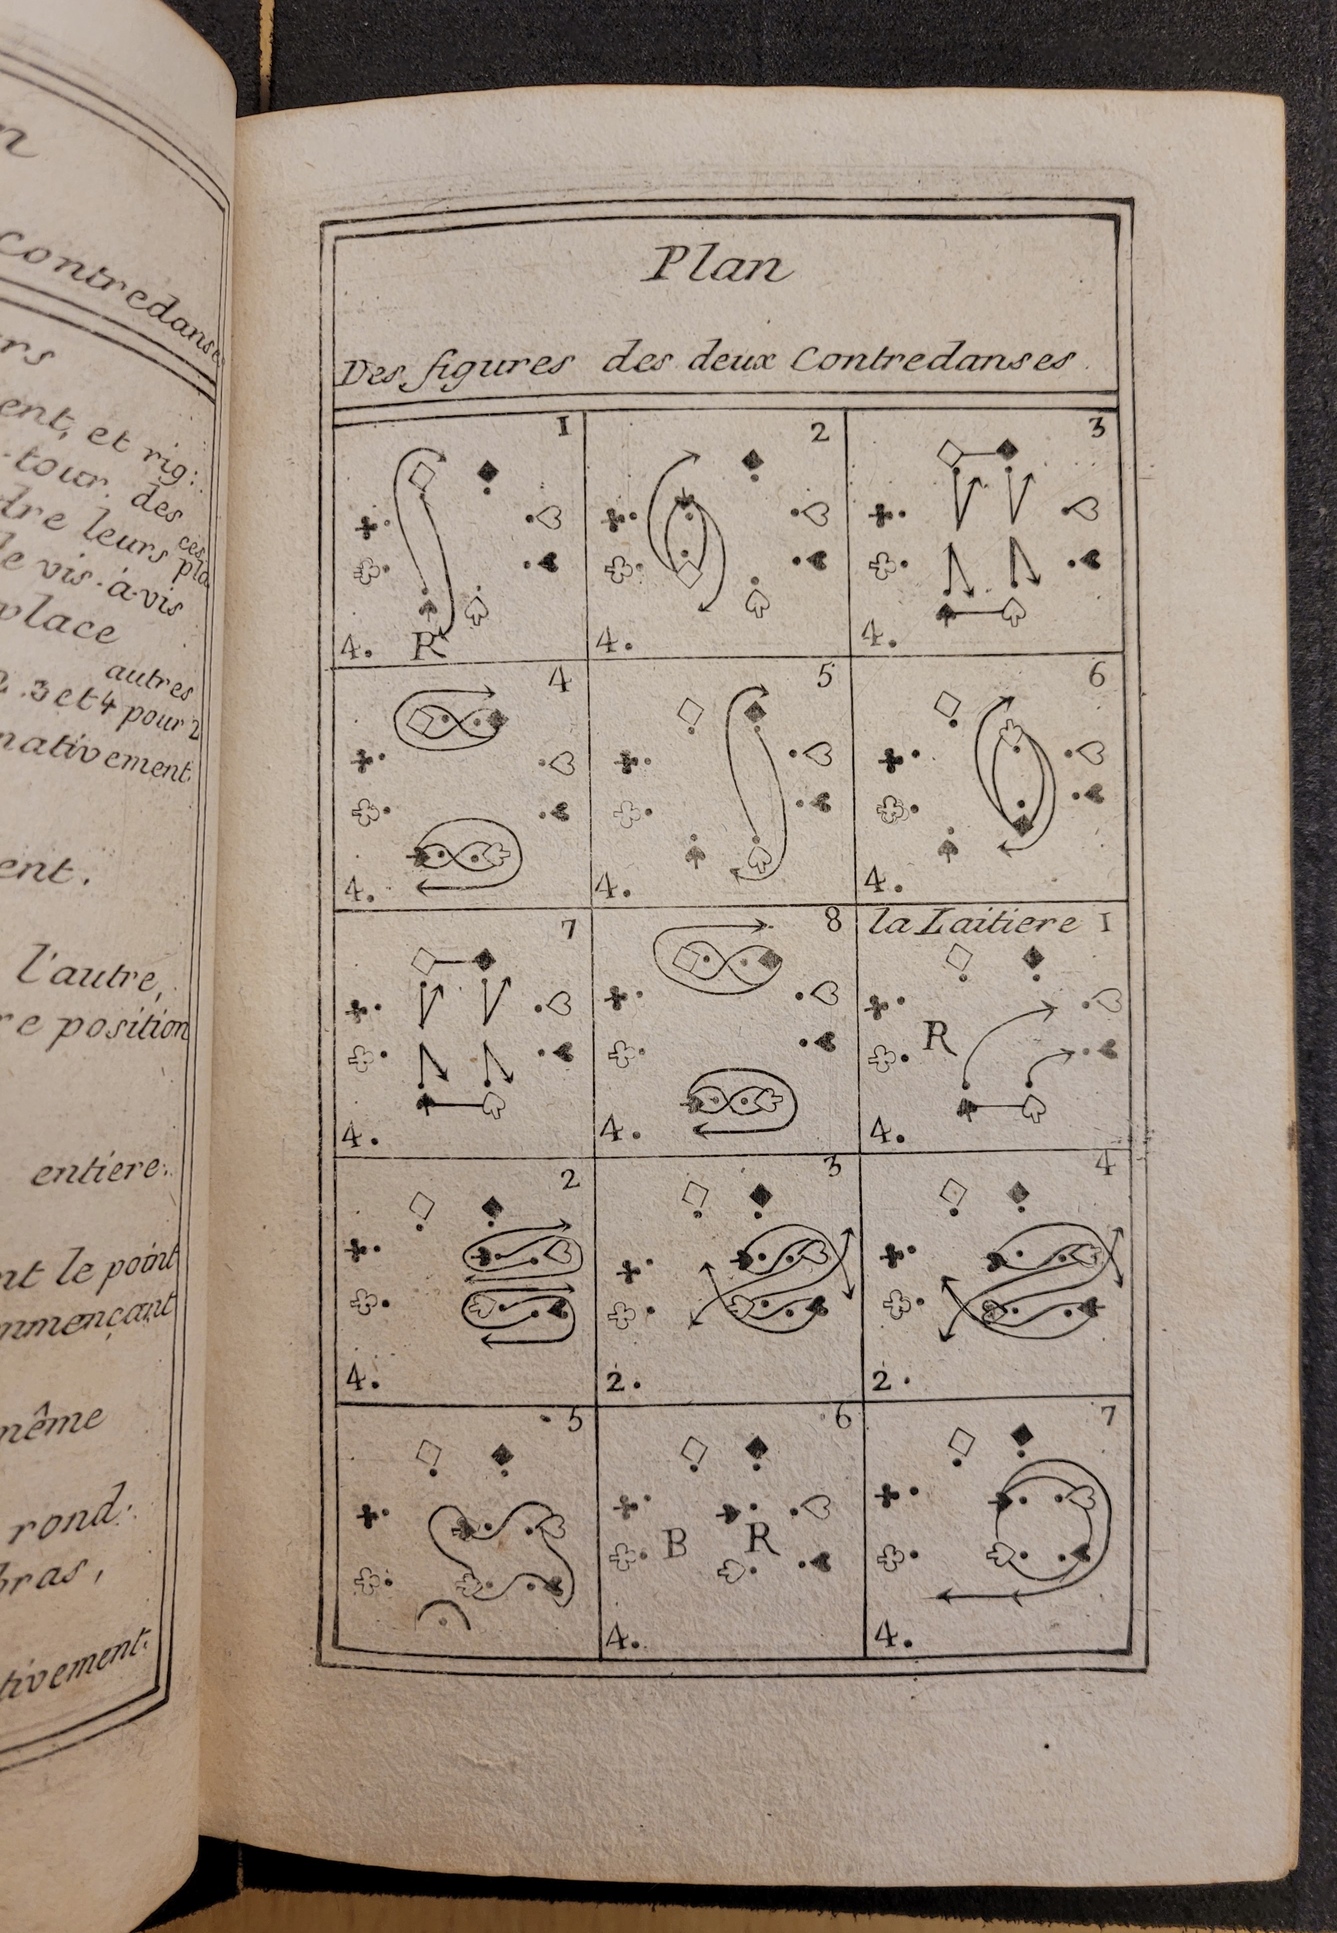 contredanses
ent, et rig:
-tour. des
dre leurs
ces
le vis-à-vis
place
autres
2.3 et 4 pour 2
nativement
ent.
l'autre,
re position
entiere:
nt le point
mmençant
même
rond:
bras,
tivement.
Plan
Des figures des deux Contredanses.
1
4. R
2
4.
3
4.
4
4.
5
4.
6
4.
7
4.
8
4.
la Laitiere 1
R
4.
2
4.
3
2.
4
2.
5
6
B R
4.
7
4.